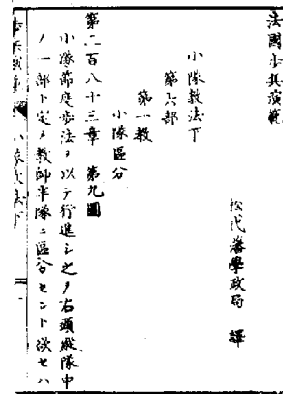 法國歩兵演範
松代藩學政局 譯
小隊教法下
第六部
第一教
小隊區分
第二百八十三章 第九圖
小隊節度歩法ヲ以テ行進シ之ヲ右頭縦隊中
ノ一部ト定メ教師半隊ニ區分セント欲セハ
小隊教法下